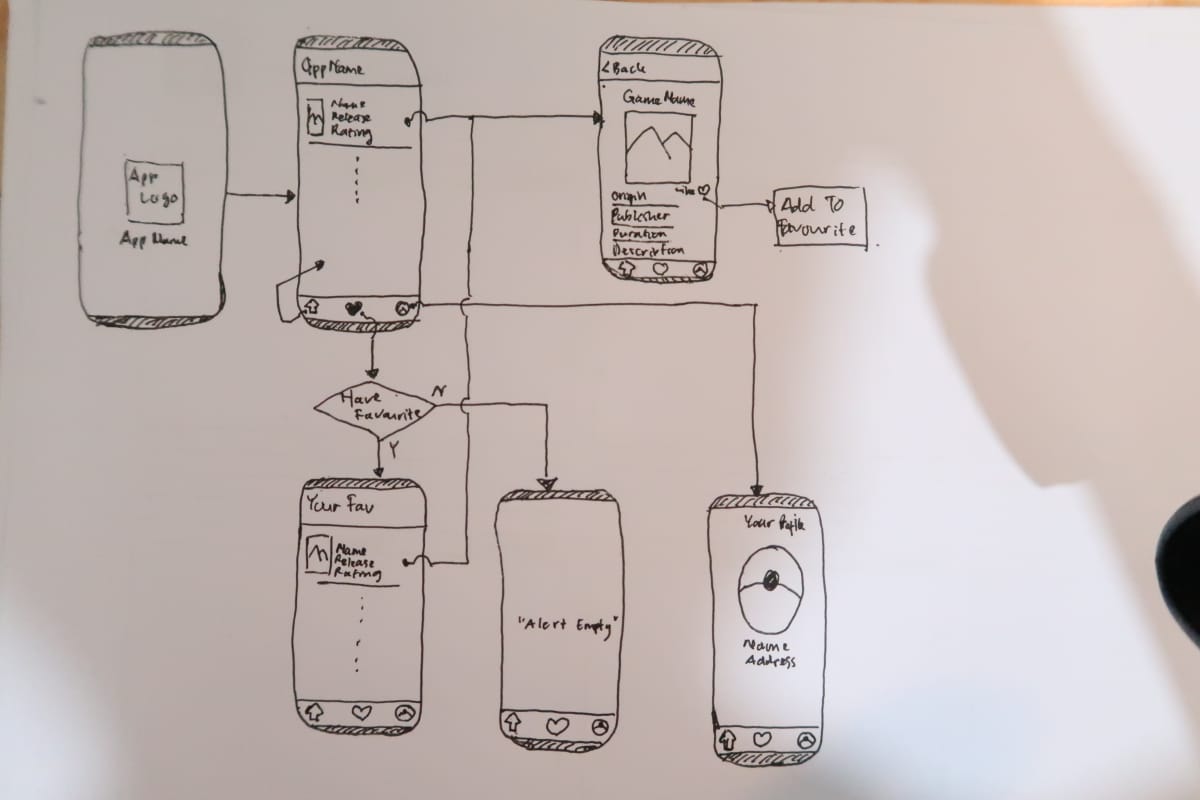 App
Logo
App Name
App Name
Name
Release
Rating
< Back
Game Name
Like
Publisher
Duration
Description
Add To
Favourite
Have
Favourite
N
Y
Your Fav
Name
Release
Rating
"Alert Empty"
Your
Name
Address